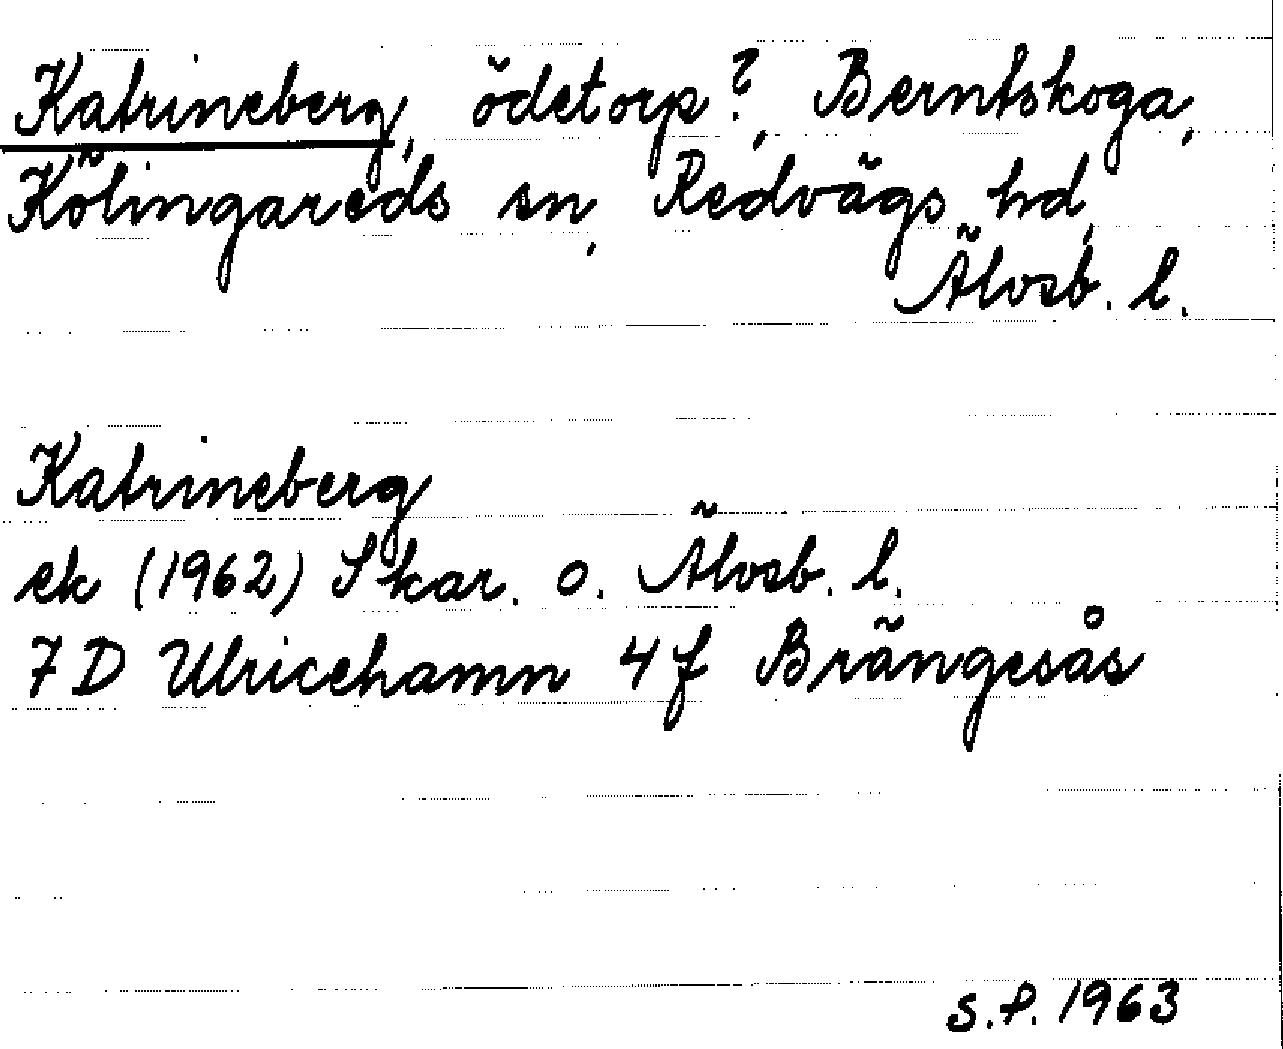 Katrineberg, ödetorp?, Berntskoga,
Kölingareds sn, Redvägs hd,
Älvsb. l.
Katrineberg
ek (1962) Skar. o. Älvsb. l.
7D Ulricehamn 4f Brängesås
S.P. 1963